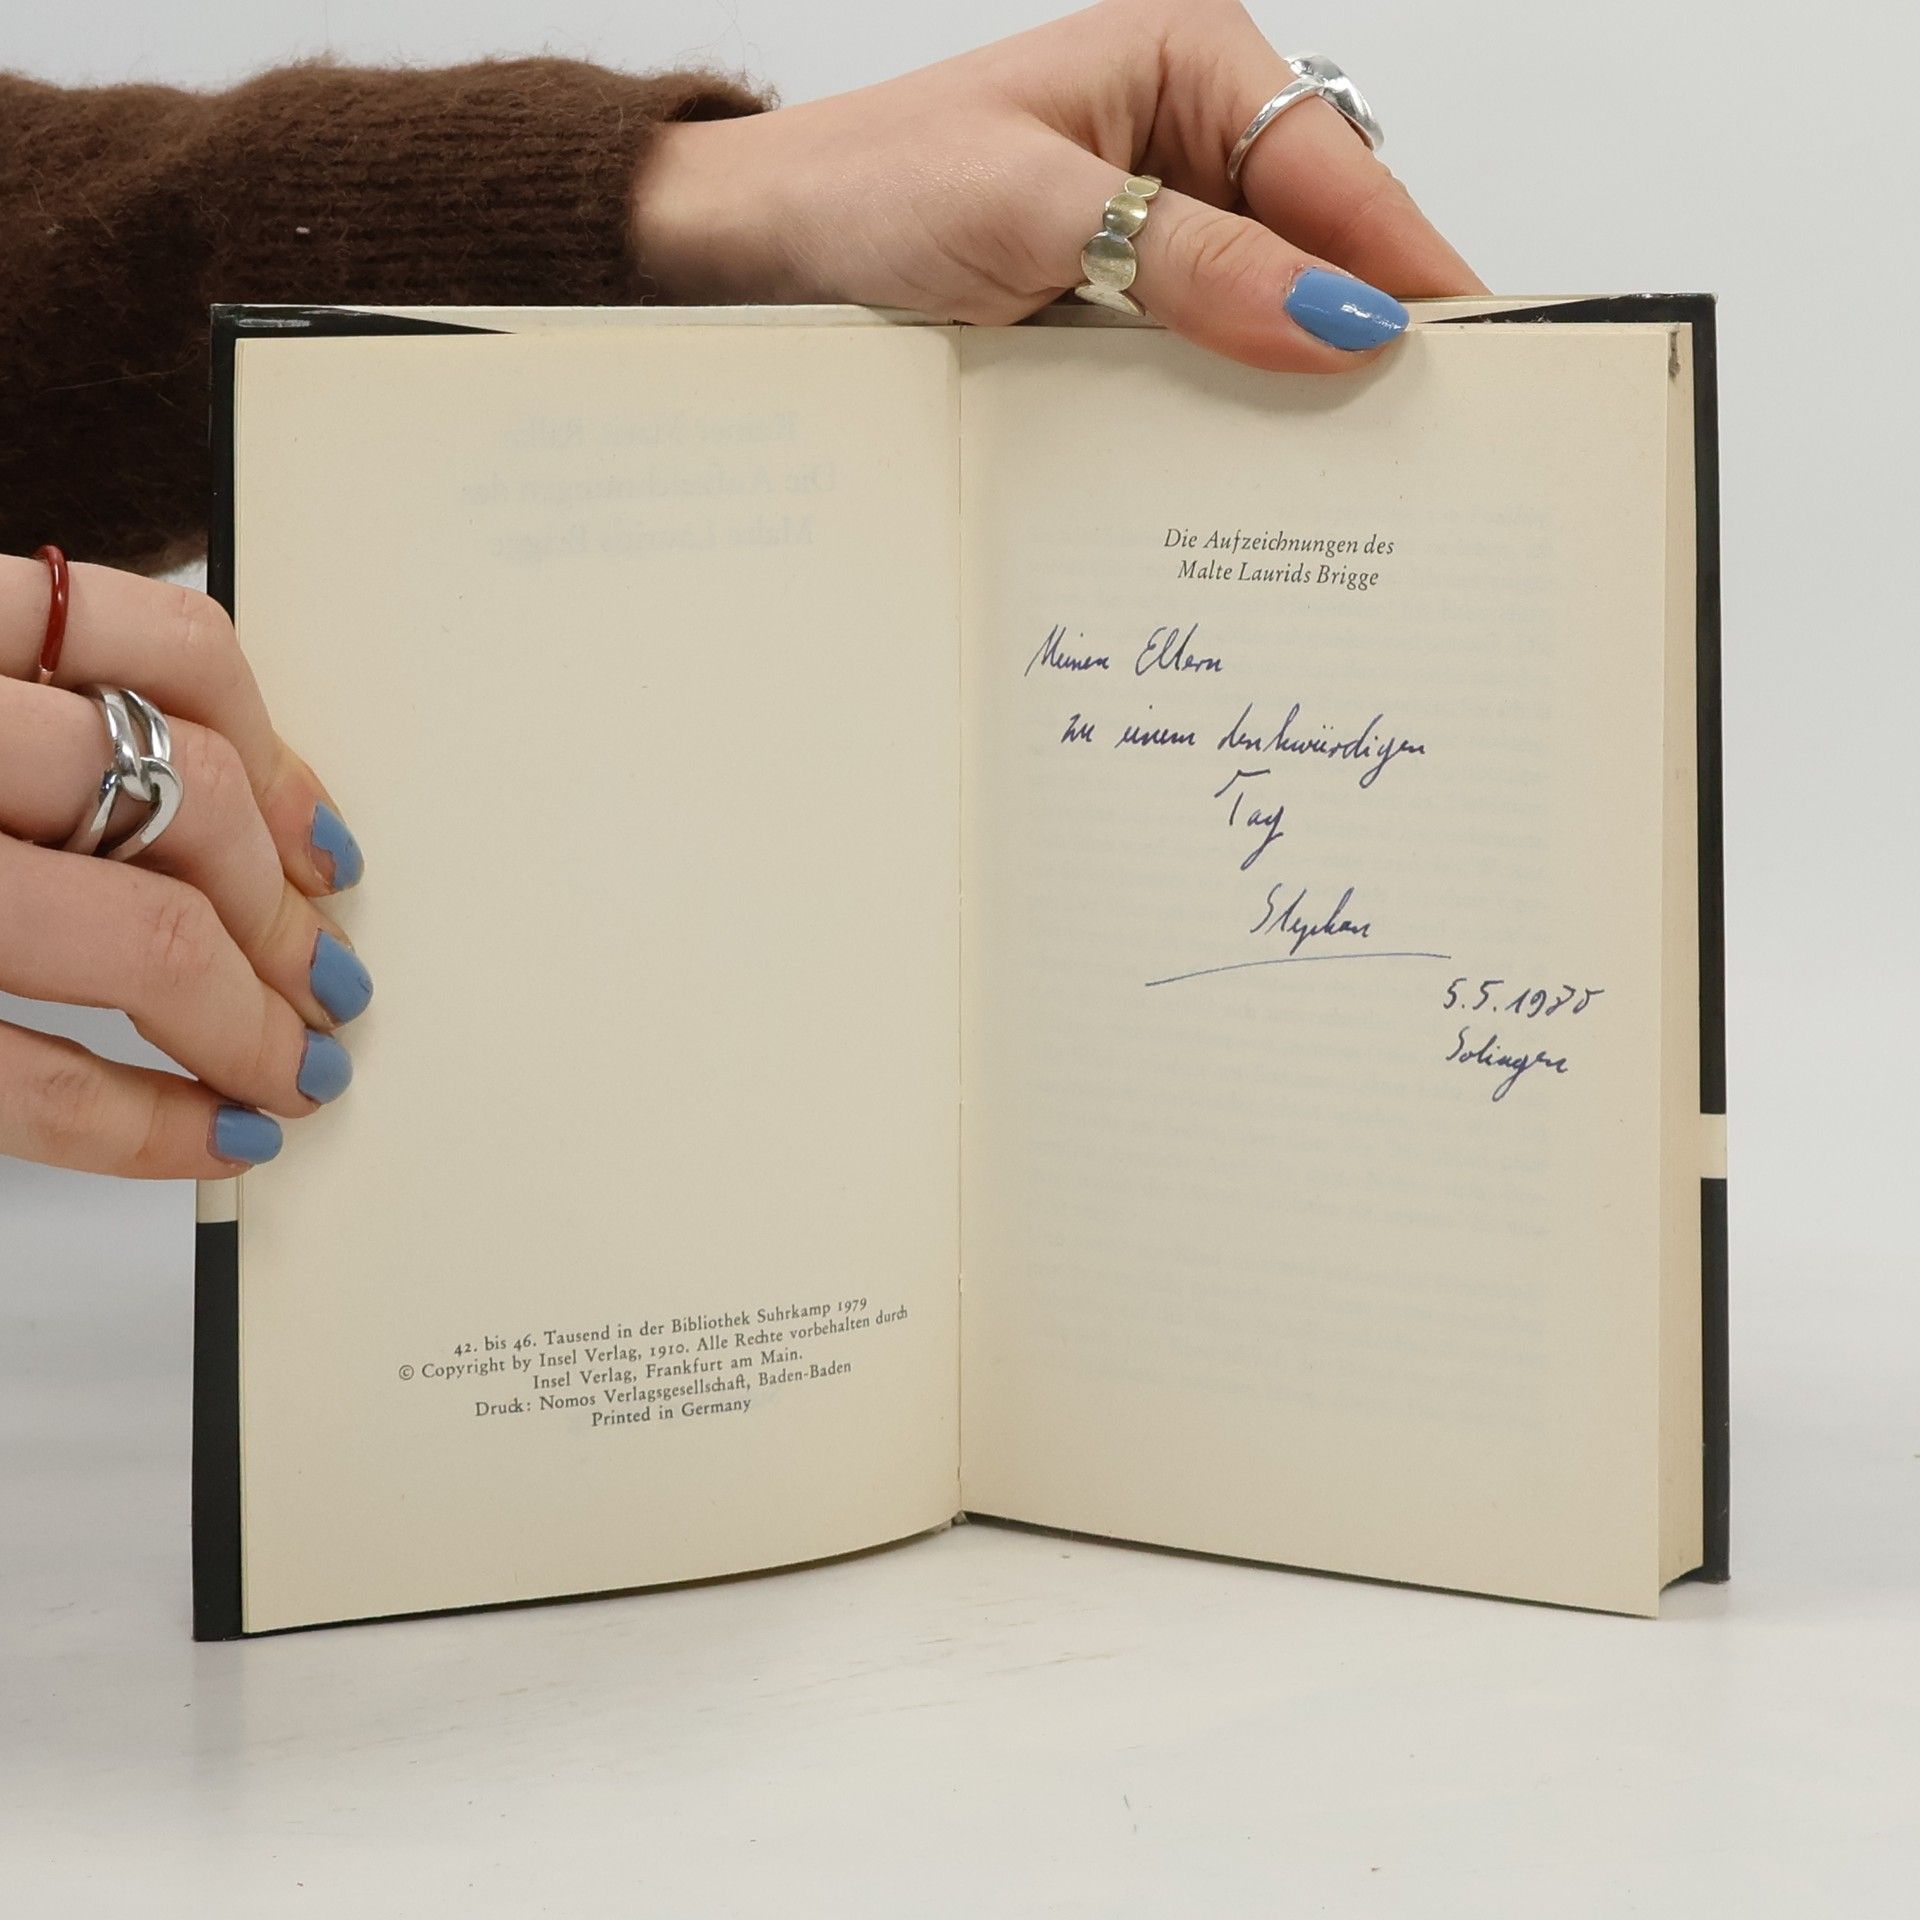 42. bis 46. Tausend in der Bibliothek Suhrkamp 1979
© Copyright by Insel Verlag, 1910. Alle Rechte vorbehalten durch
Insel Verlag, Frankfurt am Main.
Druck: Nomos Verlagsgesellschaft, Baden-Baden
Printed in Germany
Die Aufzeichnungen des
Malte Laurids Brigge
Meinen Eltern
zu einem denkwürdigen
Tag
Stephan
5.5.1980
Solingen